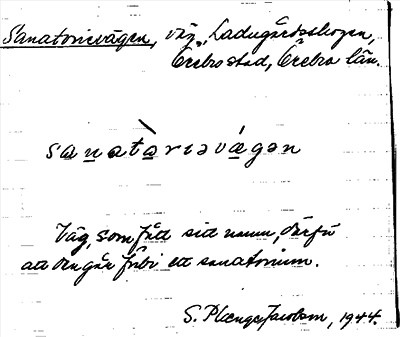 Sanatorievägen, väg, Ladugårdsskogen,
Örebro stad, Örebro län.
sanatàriəvǽgən
Väg, som fått sitt namn, därför
att den går förbi ett sanatorium.
S. Plænge Jacobson, 1944.